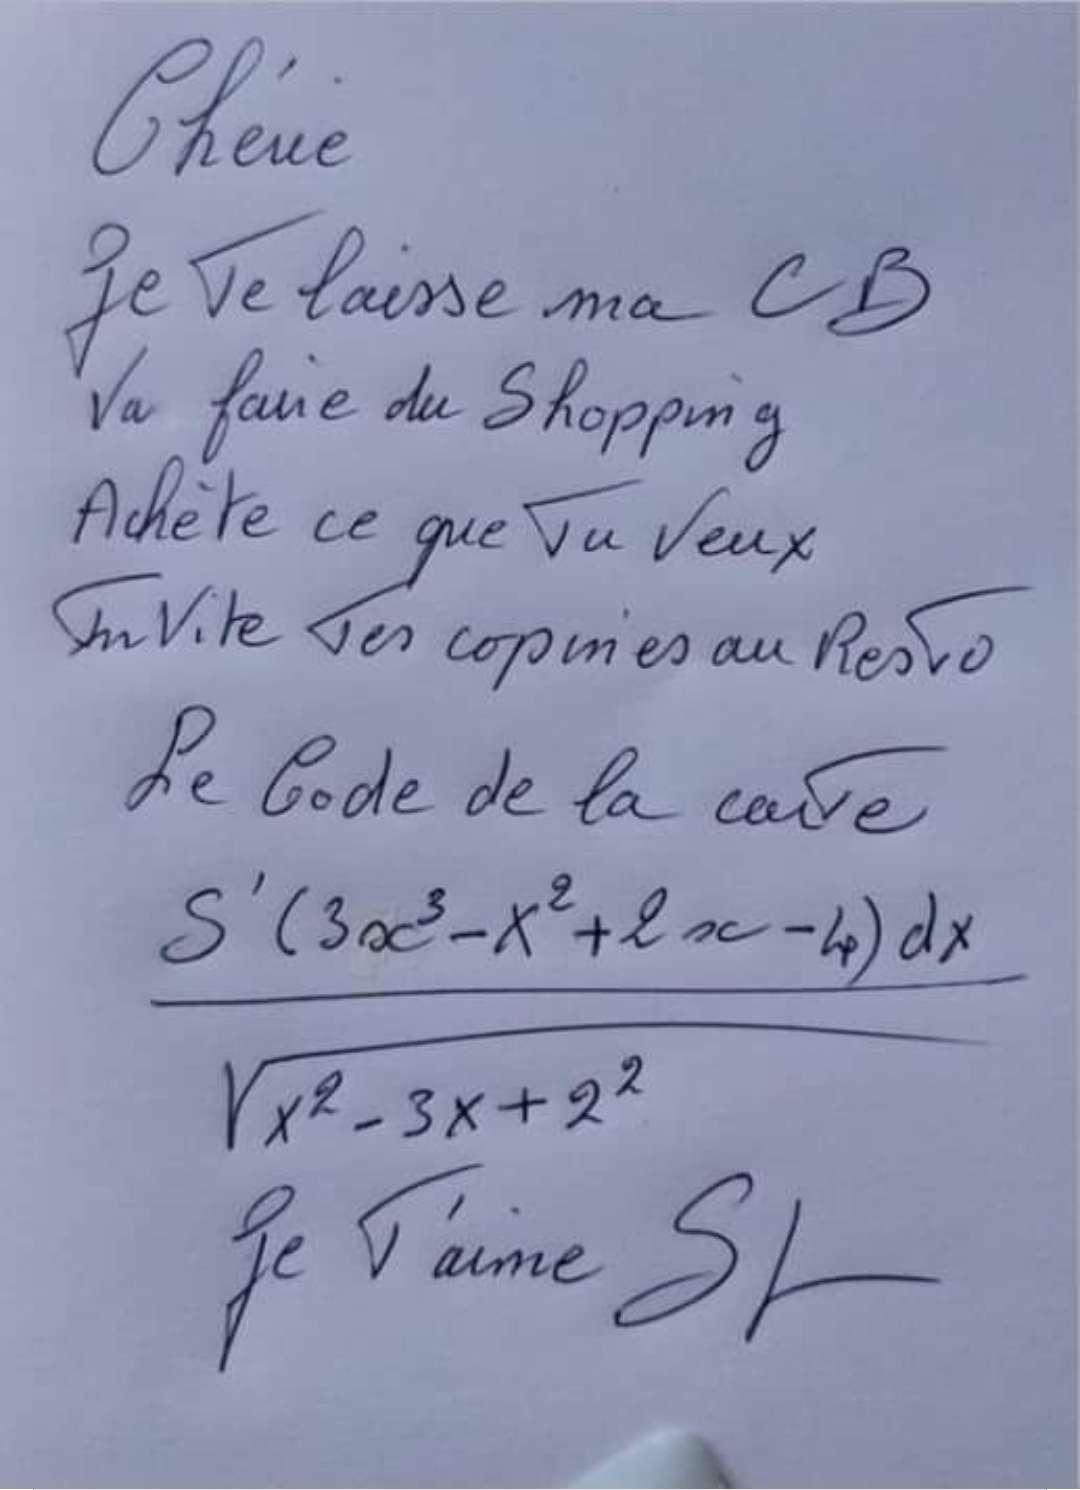 Chérie
Je Te laisse ma CB
Va faire du Shopping
Achète ce que Tu Veux
InVite Tes copines au ResTo
Le Code de la carTe
S'(3x³-x²+2x-4)dx
√x²-3x+2²
Je T'aime SL